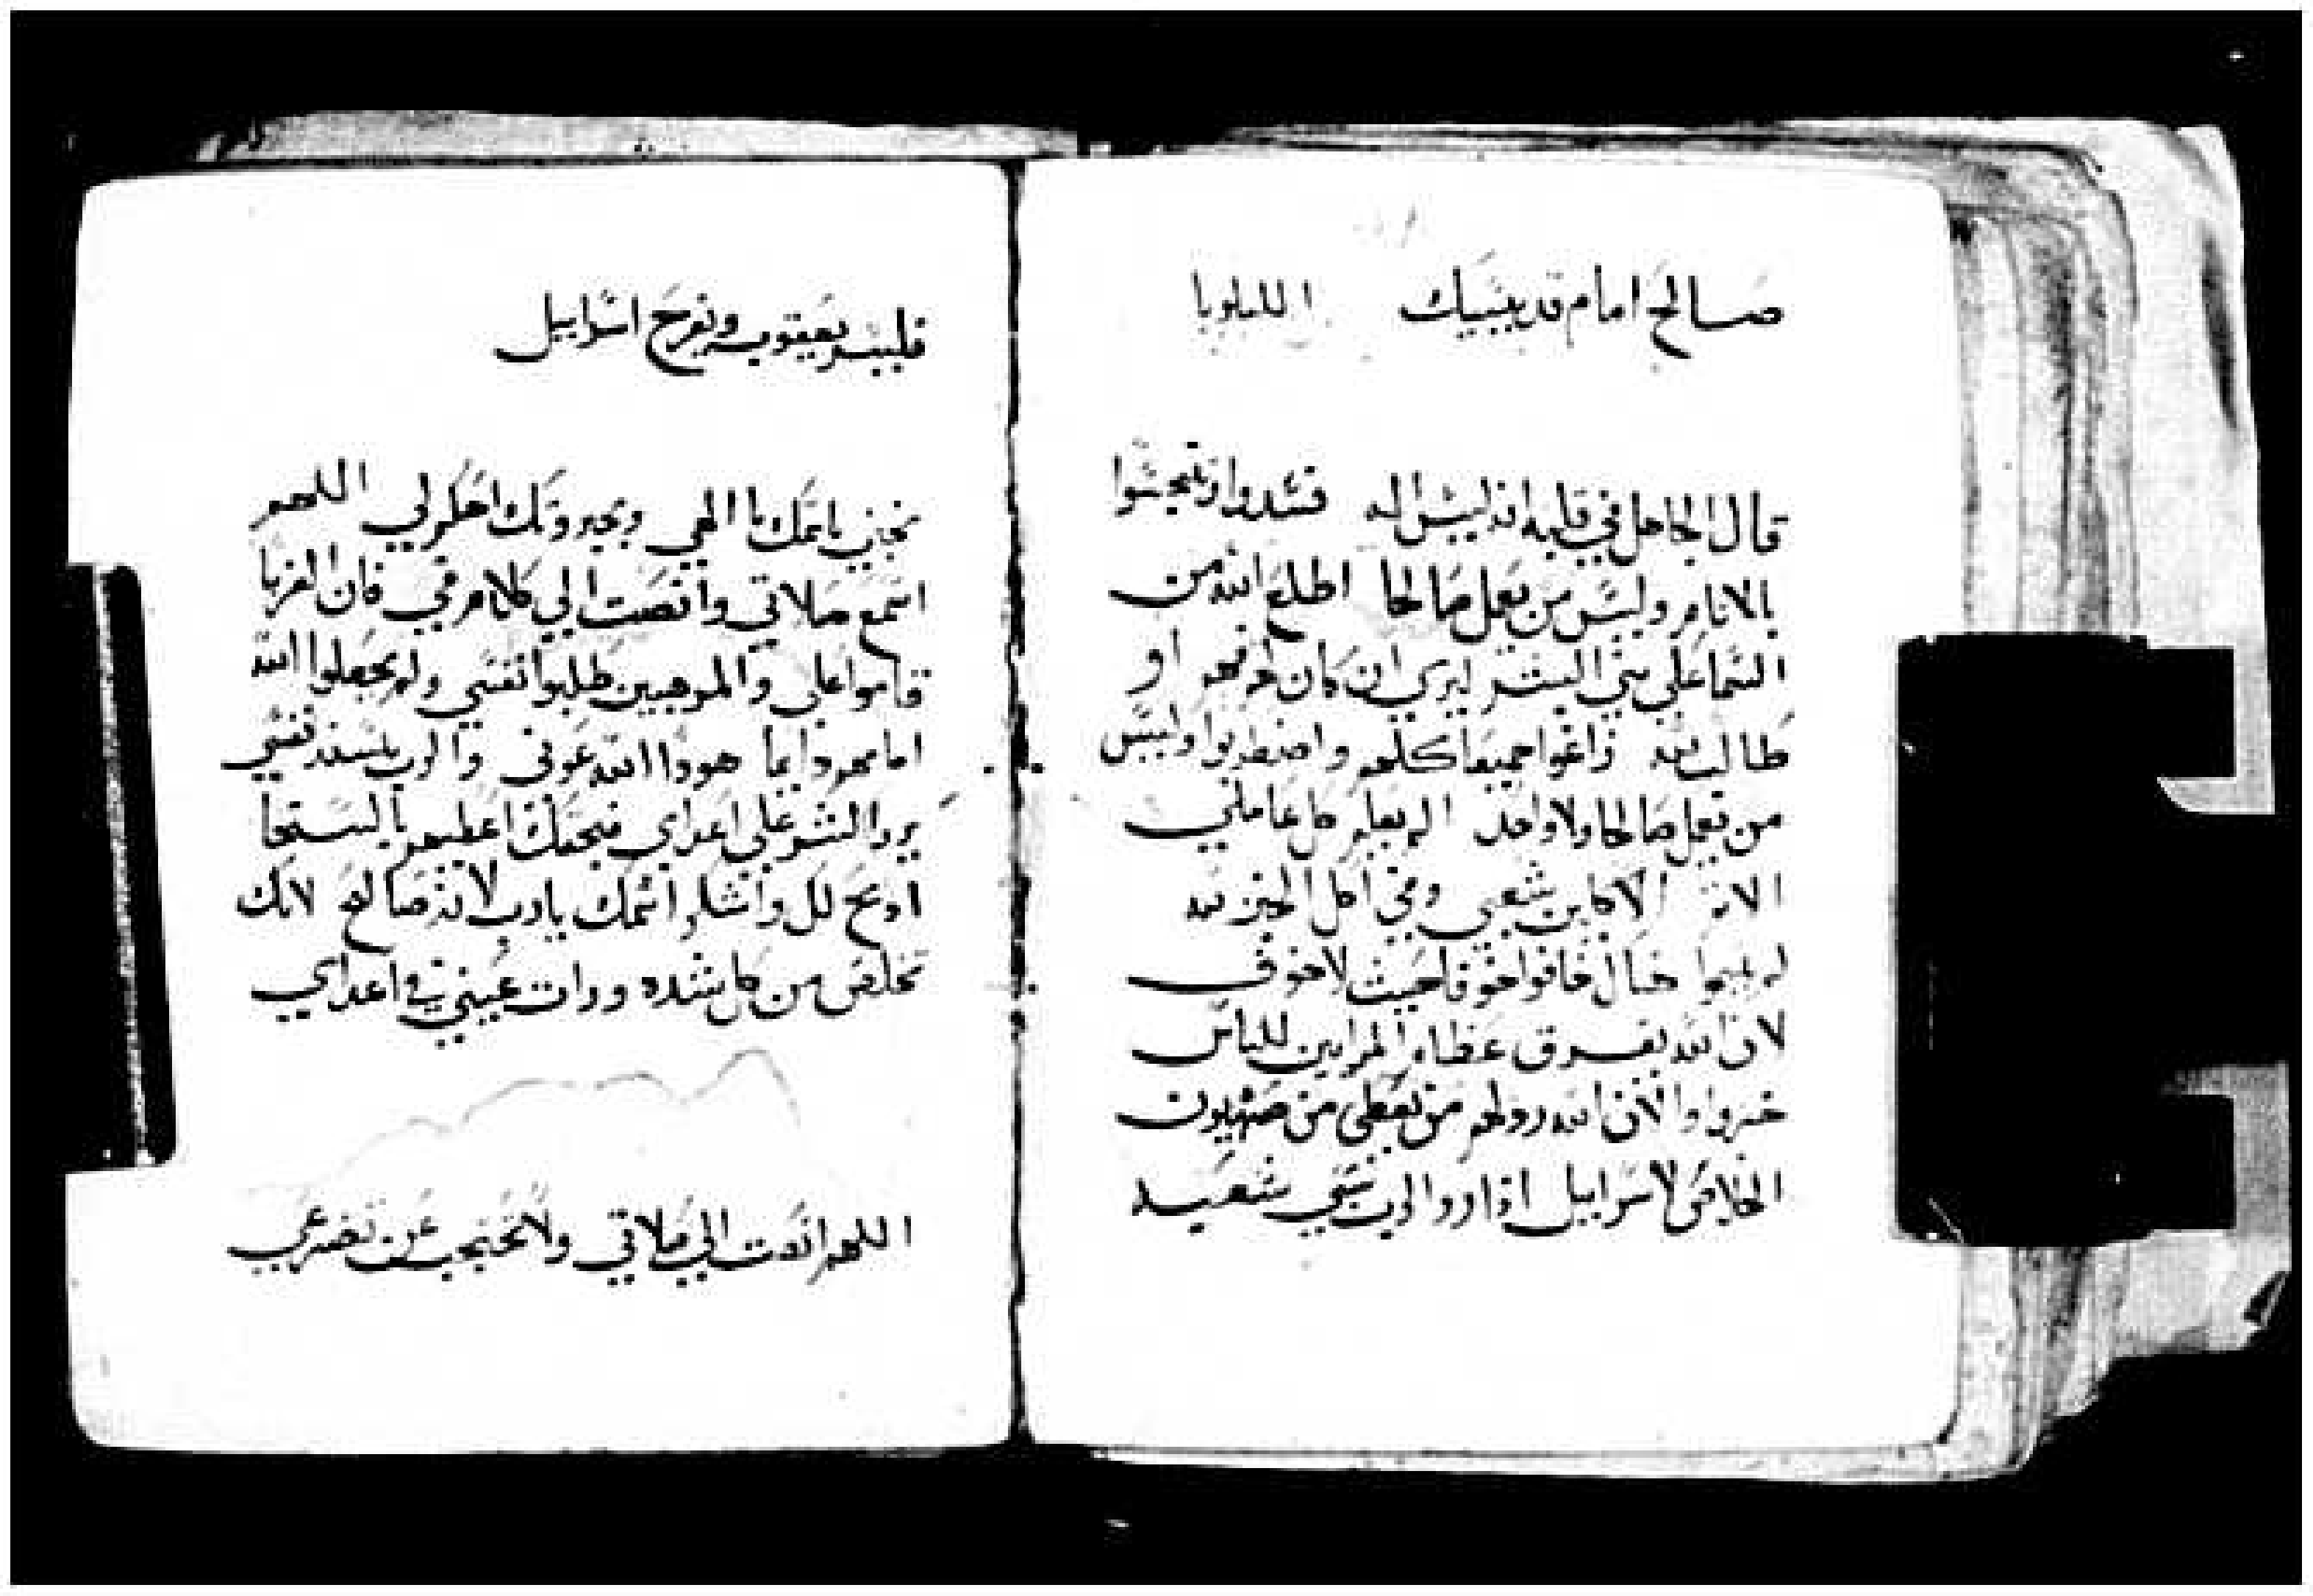 صالح امام قديسيك الليلويا
قال الجاهل في قلبه انه ليس اله فسدوا وتنجسوا
بالاثام وليس من يعمل صالحا اطلع الله من
السما على بني البشر ليرى ان كان فهم او
طالب لله زاغوا جميعا كلهم واضطربوا وليس
من يعمل صالحا ولا واحد الم يعلم كل عاملي
الاثم الاكلين شعبي وفي اكل الخبز لله
لم خافوا خوفا حيث لا خوف
لان الله يفرق عظام المرايين للناس
خزوا والان الله رذلهم من يعطى من صهيون
الخلاص لاسراييل اذا رد الرب سبي شعبه
فليسر يعقوب ويفرح اسراييل
نجني باسمك يا الهي وبجبروتك احكم لي اللهم
استمع صلاتي وانصت الى كلام فمي فان الغربا
قاموا علي والمرهبين طلبوا نفسي ولم يجعلوا الله
امامهم دايما هوذا الله عوني والرب يسند نفسي
يرد الشر على اعداي فبحقك اعطيهم
اذبح لك واشكر اسمك يا رب لانه صالح لانك
تخلص من كل شده ورات عيني في اعداي
اللهم انصت الى صلاتي ولا تحتجب عن تضرعي